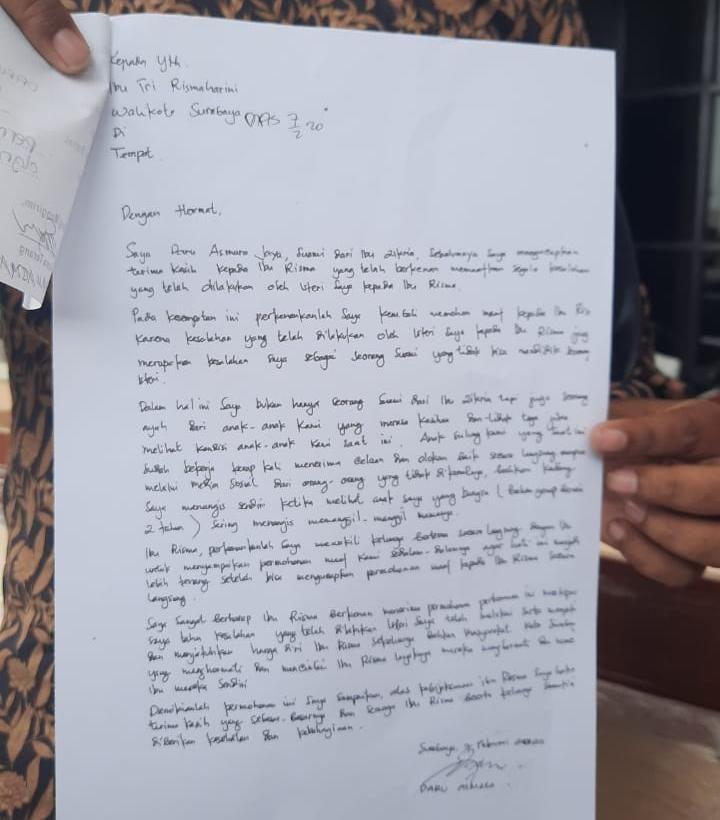 Kepada Yth.
Ibu Tri Rismaharini
Walikota Surabaya
Di
Tempat.
Dengan Hormat,
Saya Daru Asmara Jaya, Suami Dari Ibu Zikria, Sebelumnya Saya mengucapkan
terima kasih kepada Ibu Risma yang telah berkenan memaafkan segala kesalahan
yang telah dilakukan oleh isteri Saya kepada Ibu Risma.
Pada kesempatan ini perkenankanlah Saya kembali memohon maaf kepada Ibu Ris
karena kesalahan yang telah dilakukan oleh isteri Saya kepada Ibu Risma jug
merupakan kesalahan Saya sebagai seorang Suami yang tidak bisa mendidik seorang
isteri.
Dalam hal ini Saya bukan hanya seorang Suami Dari Ibu Zikria tapi juga seorang
ayah Dari anak-anak Kami yang merasa kasihan Dan tidak tega
melihat kondisi anak-anak Kami Saat ini. Anak Sulung kami yang Saat ini
Sudah bekerja kerap kali menerima celaan Dan olokan baik secara langsung maupun
melalui media Sosial Dari orang-orang yang tidak Dikenalnya, bahkan kadang
Saya menangis sendiri ketika melihat anak Saya yang bungsu (Belum genap
2 tahun) Sering menangis memanggil-manggil mamanya.
Ibu Risma, perkenankanlah Saya mewakili keluarga Bertemu secara langsung dengan Ibu
untuk menyampaikan permohonan maaf Kami agar hati
lebih tenang setelah bisa mengucapkan permohonan maaf kepada Ibu Risma secara
langsung.
Saya Sangat Berharap Ibu Risma Berkenan menerima permohonan pertemuan ini meskipun
Saya tahu kesalahan yang telah Dilakukan isteri Saya telah melukai
Dan menjatuhkan harga Diri Ibu Risma sekeluarga Bahkan masyarakat Kota Surabaya
yang menghormati Dan mencintai Ibu Risma layaknya mereka menghormati
Ibu mereka Sendiri
Demikianlah permohonan ini Saya Sampaikan, atas kebijaksanaan Ibu Risma Saya
terima kasih yang sebesar-besarnya Dan semoga Ibu Risma Beserta keluarga
Diberikan kesehatan Dan kebahagiaan.
Surabaya, Februari
DARU